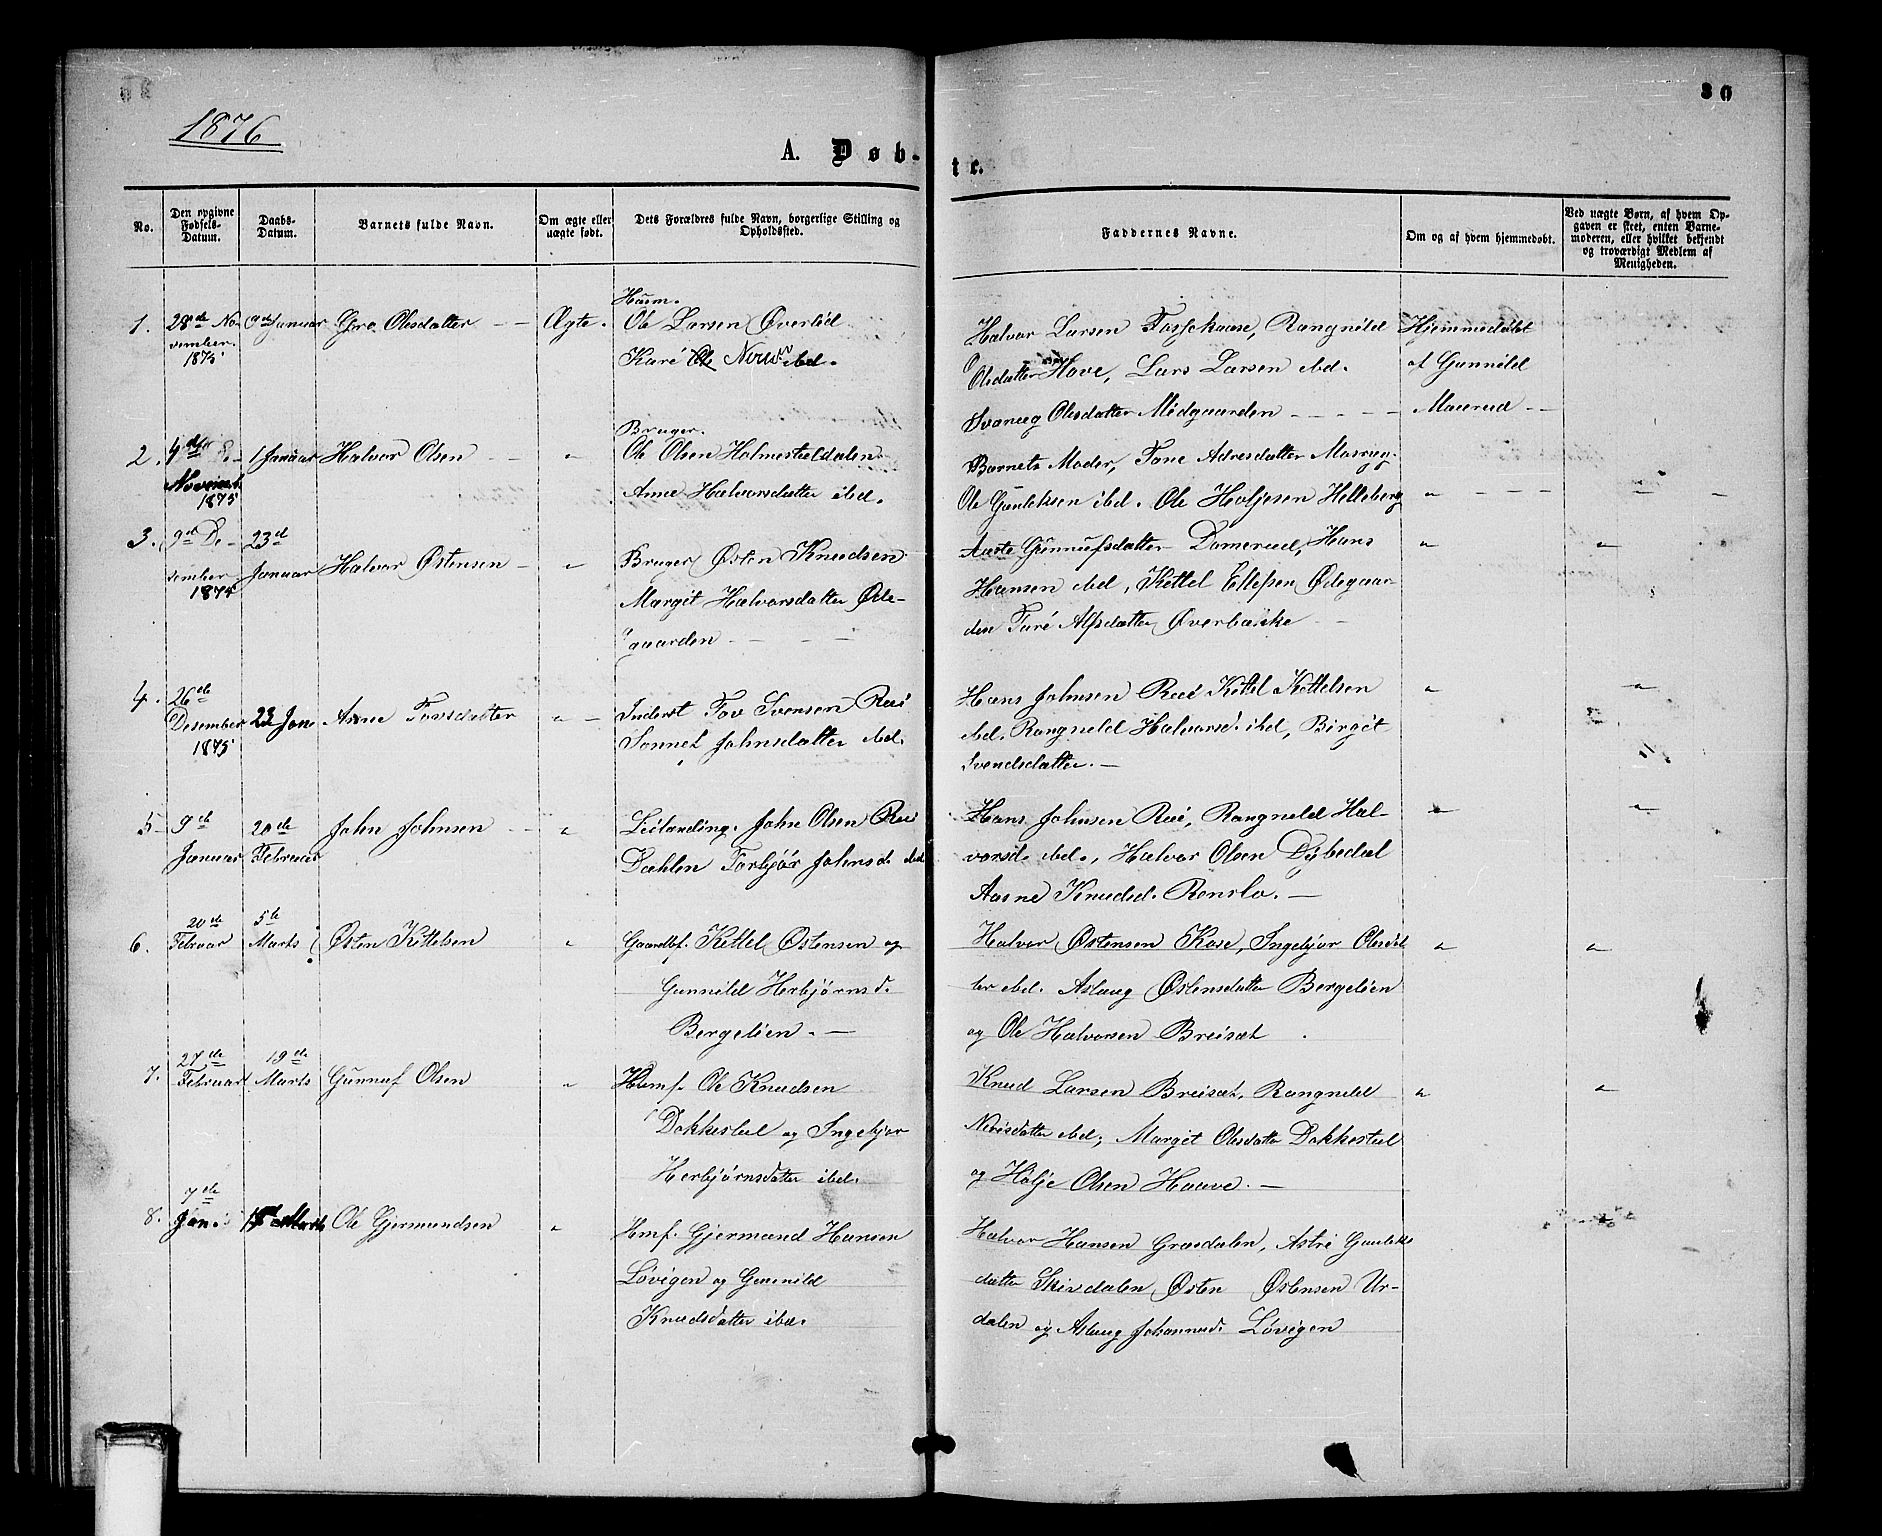 30
1876
A. Døb-
te.
No.
Den opgivne Fødsels-Datum.
Daabs-Datum.
Barnets fulde Navn.
Om ægte eller uægte født.
Dets Forældres fulde Navn, borgerlige Stilling og Opholdssted.
Faddernes Navne.
Om og af hvem hjemmedøbt.
Ved uægte Børn, af hvem Opgaven er skeet, enten Barnemoderen, eller hvilket bekjendt og troværdigt Medlem af Menigheden.
1. 28de November 1875 Januar Gro Olsdatter Ægte.
Husm.
Ole Larsen Øverlid
Kari ibd.
Halvor Larsen Rangnild
Olsdatter Hove, Lars Larsen ibd.
Svanaug Olsdatter Midgaarden
Hjemmedøbt
af Gunnild
2. 4de 1875 1 Januar Halvor Olsen "
Bruger.
Ole Olsen Holmestuldalen
Anne Halvorsdatter ibd.
Barnets Moder, Tone
Ole Gunleksen ibd. Ole Holjesen Helleberg "
3. 9de De-
sember 1875 23de Januar Halvor Østensen "
Bruger Østen Knudsen
Margit Halvorsdatter Øde-
gaarden
Gunnufsdatter Hans
Hansen ibd, Kittel Ellefsen Ødegaar-
den Turi Alfsdatter Øverbakke
" "
4. 26de Desember 1875 23 Jan Anne Tovsdatter "
Inderst Tov Svensen Rui
Sønnet Johnsdatter ibd.
Hans Johnsen Rui Kittel Kittelsen
ibd. Rangneld Halvorsd. ibd, Birgit
Svendsdatter.
" "
5 9de Januar 20de Februar John Johnsen "
Leilænding. John Olsen Rui
Dahlen Torbjør Johnsd. ibd
Hans Johnsen Rui, Rangneld Hal-
vorsd. ibd., Halvor Olsen Dybedal
Aasne Knudsd. Renslo.
" "
6. 20de Februar 5te Marts Østen Kittelsen "
Gaardbf. Kittel Østensen og
Gunnild Herbjørnsd.
Bergelien.
Halvor Østensen Kase, Ingebjør Olsdat
ter ibd. Aslaug Østensdatter Bergelien
og Ole Halvorsen Breisæt
" "
7. 27de Februar 19de Marts Gunnuf Olsen "
Husmf. Ole Knudsen
Dokkestul og Ingebjør
Herbjørnsdatter ibd.
Knud Larsen Breisæt, Rangneld
Nirisdatter ibd; Margit Olsdatter Dokkestul
og Holje Olsen Haave.
" "
8. 7de Jan. Ole Gjermundsen "
Hmf. Gjermund Hansen
Løvigen og Gunnild
Knudsdatter ibd.
Halvor Hansen Græsdalen, Astri Gunleks
datter Skirdalen Østen Østensen Ur-
dalen og Aslaug Johannesd. Løvigen